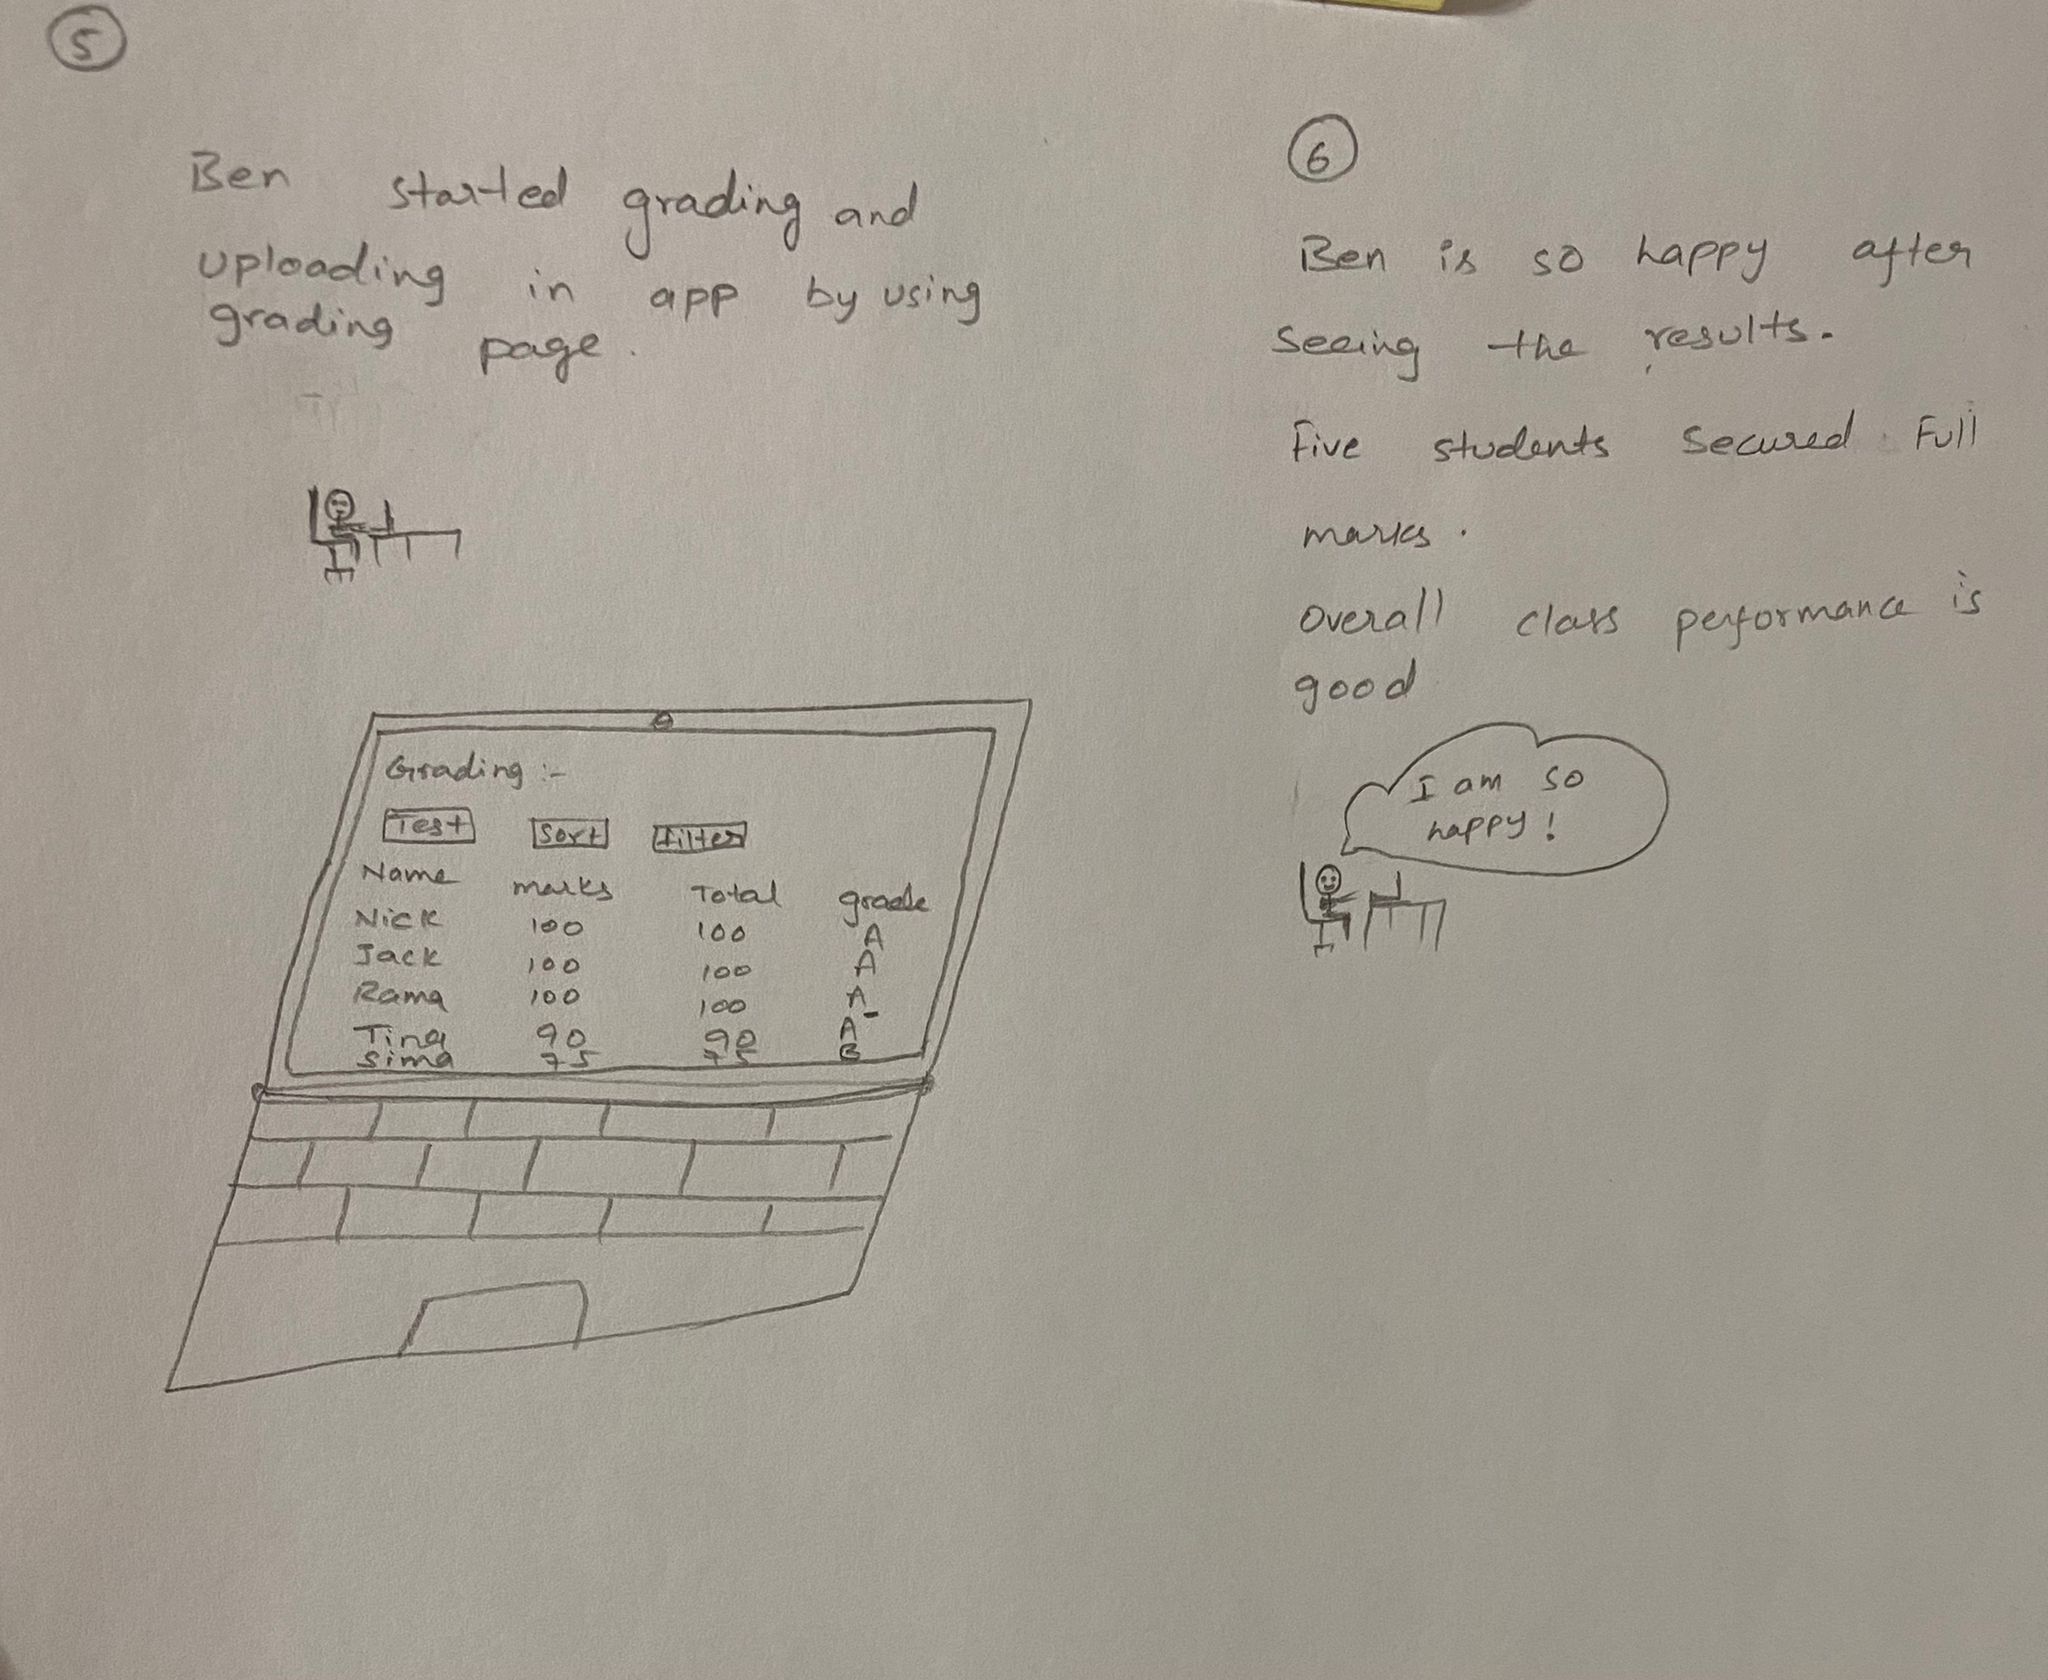 5
Ben started grading and
uploading in app by using
grading page.
Grading :-
Test Sort Filter
Name marks Total grade
Nick 100 100 A
Jack 100 100 A
Rama 100 100 A
Tina 90 90 A-
Sima 75 75 B
6
Ben is so happy after
seeing the results.
Five students secured Full
marks.
Overall class performance is
good
I am so
happy!